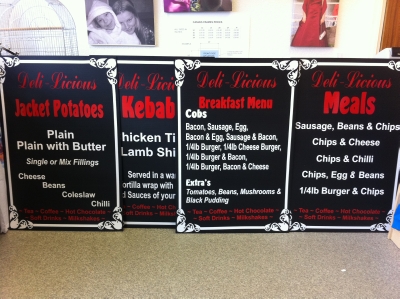 Deli-Licious
Jacket Potatoes
Plain
Plain with Butter
Single or Mix Fillings
Cheese
Beans
Coleslaw
Chilli
Tea ~ Coffee ~ Hot Chocolate
Soft Drinks ~ Milkshakes
Deli-Licious
Kebab
Chicken
Lamb
Served in a
tortilla wrap with
Sauces of your
Deli-Licious
Breakfast Menu
Cobs
Bacon, Sausage, Egg,
Bacon & Egg, Sausage & Bacon,
1/4lb Burger, 1/4lb Cheese Burger,
1/4lb Burger & Bacon,
1/4lb Burger, Bacon & Cheese
Extra's
Tomatoes, Beans, Mushrooms &
Black Pudding
Tea ~ Coffee ~ Hot Chocolate
Soft Drinks ~ Milkshakes
Deli-Licious
Meals
Sausage, Beans & Chips
Chips & Cheese
Chips & Chilli
Chips, Egg & Beans
1/4lb Burger & Chips
Tea ~ Coffee ~ Hot Chocolate
Soft Drinks ~ Milkshakes